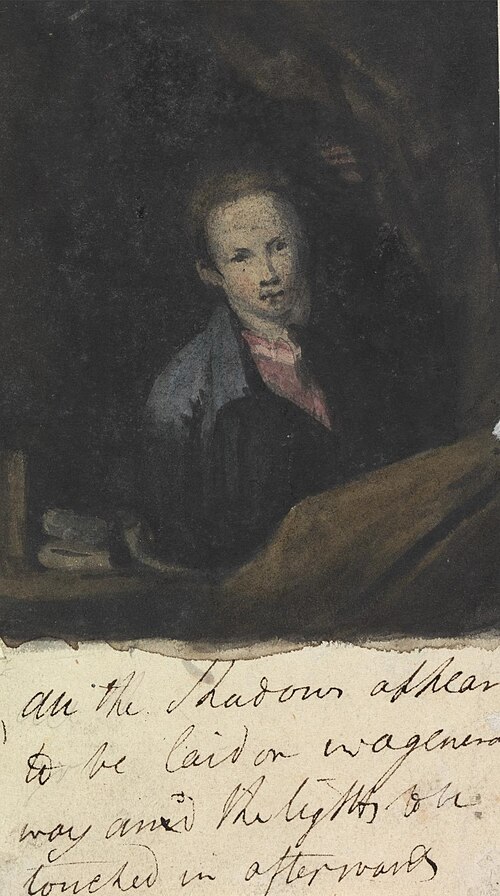 all the Shadows appear
to be laid on in a genera
way and the lights to be
touched in afterwards